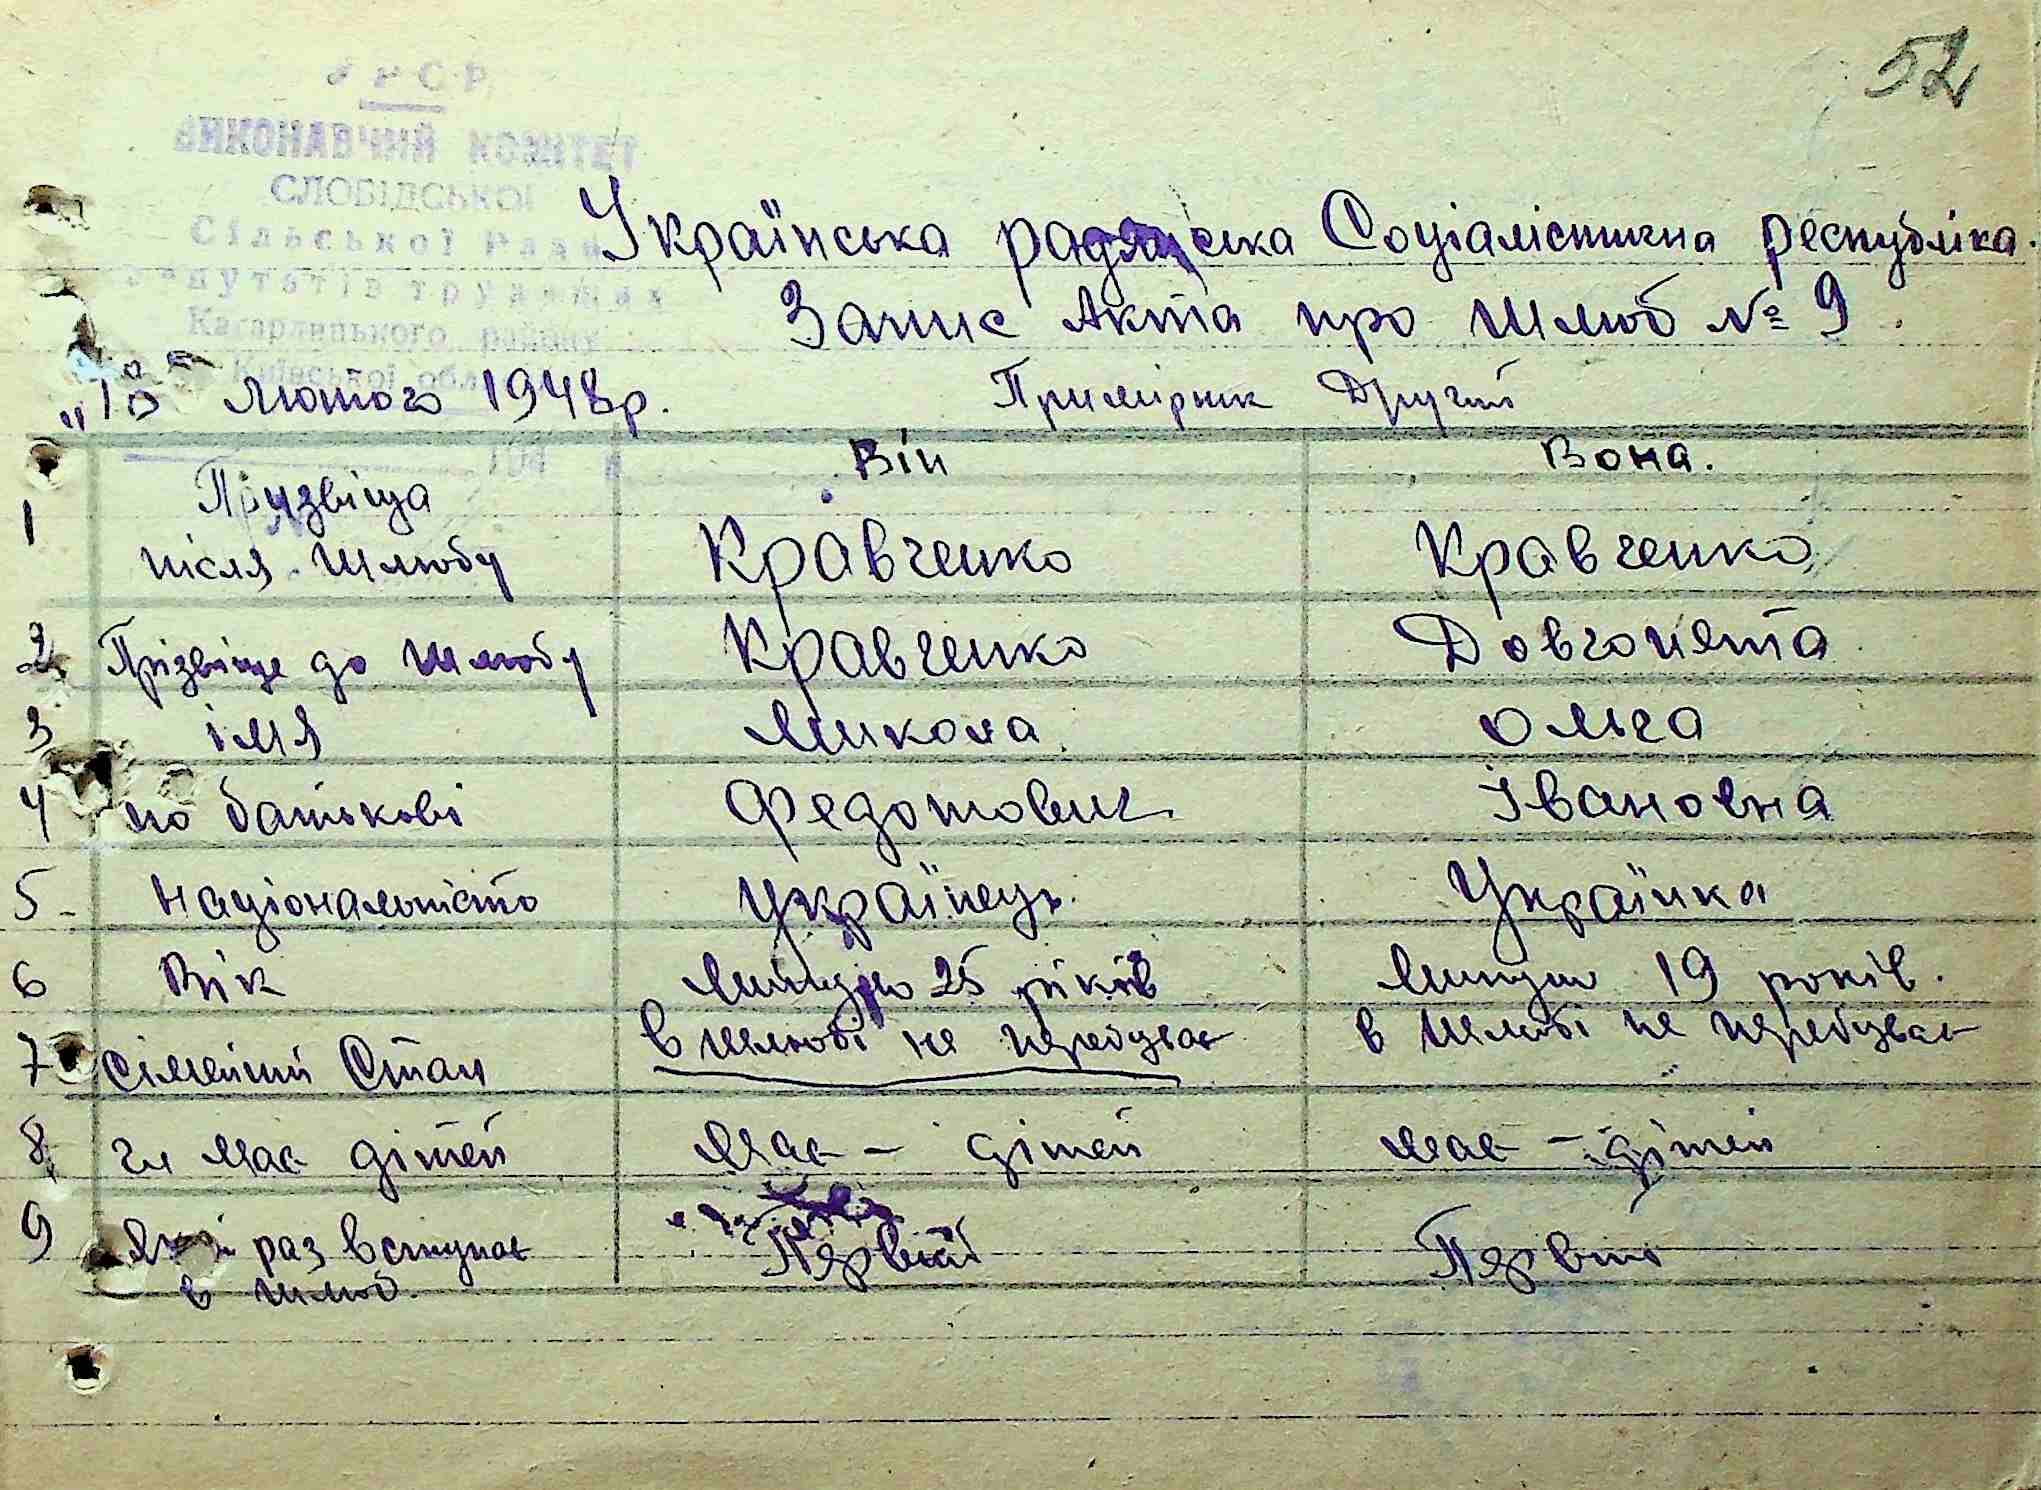 52
УРСР
ВИКОНАВЧИЙ КОМІТЕТ
СЛОБІДСЬКОЇ
Сільської Ради
депутатів трудящих
Кагарлицького району
Київської обл
Українська радянська Соціалістична республіка.
Запис Акта про шлюб № 9
"18" лютого 1948 р. Примірник Другий
194
Він Вона.
1 Прузвіща після шлюбу Кравченко Кравченко
2 Прізвіще до шлюбу Кравченко Довгопята
3 імя Микола Ольга
4 по батькові Федотович Івановна
5 Національність Українець Українка
6 Вік Минуло 25 років Минуло 19 років.
7 Сімейний Стан в шлюбі не перебуває в шлюбі не перебуває
8 чи має дітей має – дітей має – дітей
9 раз вступає в шлюб. Первий Первий